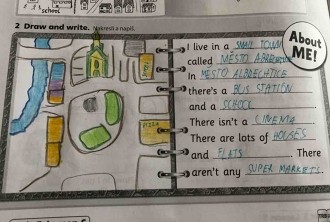 school
2 Draw and write. Nakresli a napiš.
About
ME!
I live in a SMALL TOWN
called MĚSTO ALBRECHTICE
In MĚSTO ALBRECHTICE
there's a BUS STATION
and a SCHOOL.
There isn't a CINEMA.
There are lots of HOUSES
and FLATS. There
aren't any SUPER MARKETS.
PIZZA